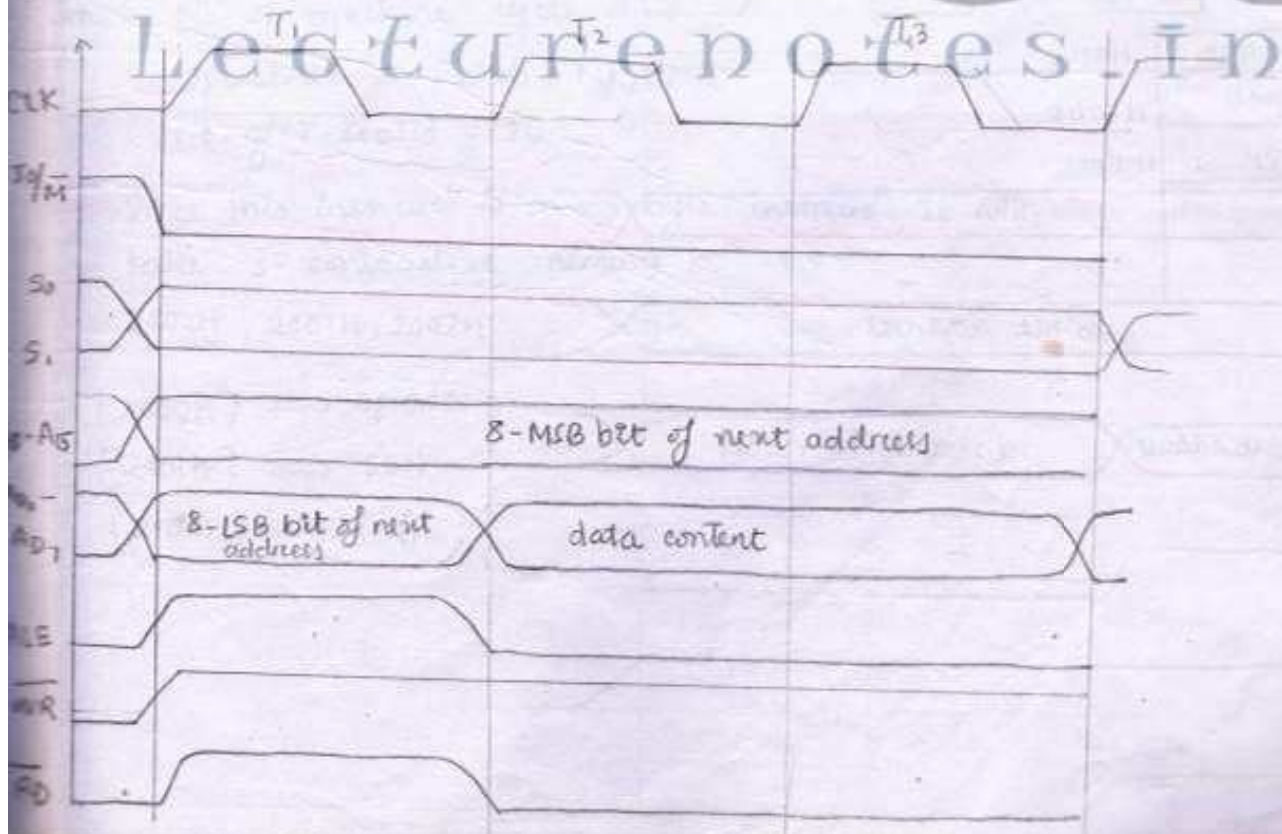 Lecturenotes.in
T₁ T₂ T₃
CLK
IO/M̅
S₀
S₁
8-A₁₅
8-MSB bit of next address
AD₇
8-LSB bit of next
address
data content
ALE
W̅R̅
R̅D̅